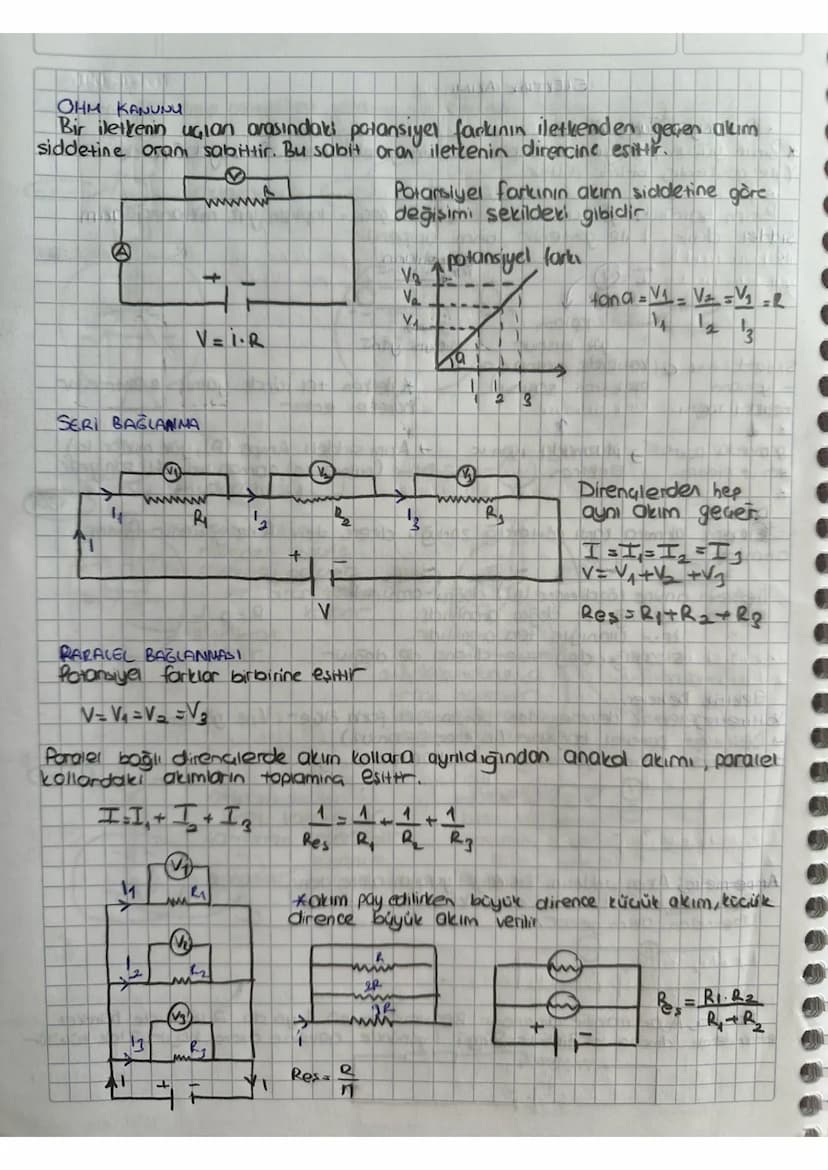 OHM KANUNU
Bir iletkenin uçları arasındaki potansiyel farkının iletkenden geçen akım
siddetine oranı sabittir. Bu sabit oran iletkenin direncine esittir.
V
R
A
+ -
V = i.R
Potansiyel farkının akım siddetine göre
değişimi sekildeki gibidir
potansiyel farkı
V3
V2
V1
a
I1 I2 I3
tan a = V1/I1 = V2/I2 = V3/I3 = R
SERİ BAĞLANMA
V1 V2 V3
I1 R1 I2 R2 I3 R3
I
+ -
V
Dirençlerden hep
aynı akım geçer.
I = I1 = I2 = I3
V = V1 + V2 + V3
Res = R1 + R2 + R3
PARALEL BAĞLANMASI
Potansiyel farklar birbirine eşittir
V = V1 = V2 = V3
Paralel bağlı dirençlerde akım kollara ayrıldığından anakol akımı, paralel
kollardaki akımların toplamına esittir.
I = I1 + I2 + I3
1/Res = 1/R1 + 1/R2 + 1/R3
V1
I1 R1
V2
I2 R2
V3
I3 R3
I + - I
*akım pay edilirken büyük dirence küçük akım, küçük
dirence büyük akım verilir
R
2R
i
Res = R/n
+ -
Res = R1.R2/R1+R2